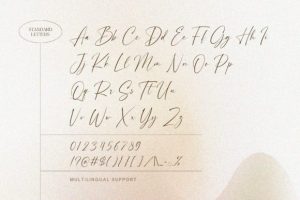 STANDARD
LETTERS
Aa Bb Cc Dd Ee Ff Gg Hh Ii
Jj Kk Ll Mm Nn Oo Pp
Qq Rr Ss Tt Uu
Vv Ww Xx Yy Zz
0123456789
MULTILINGUAL SUPPORT